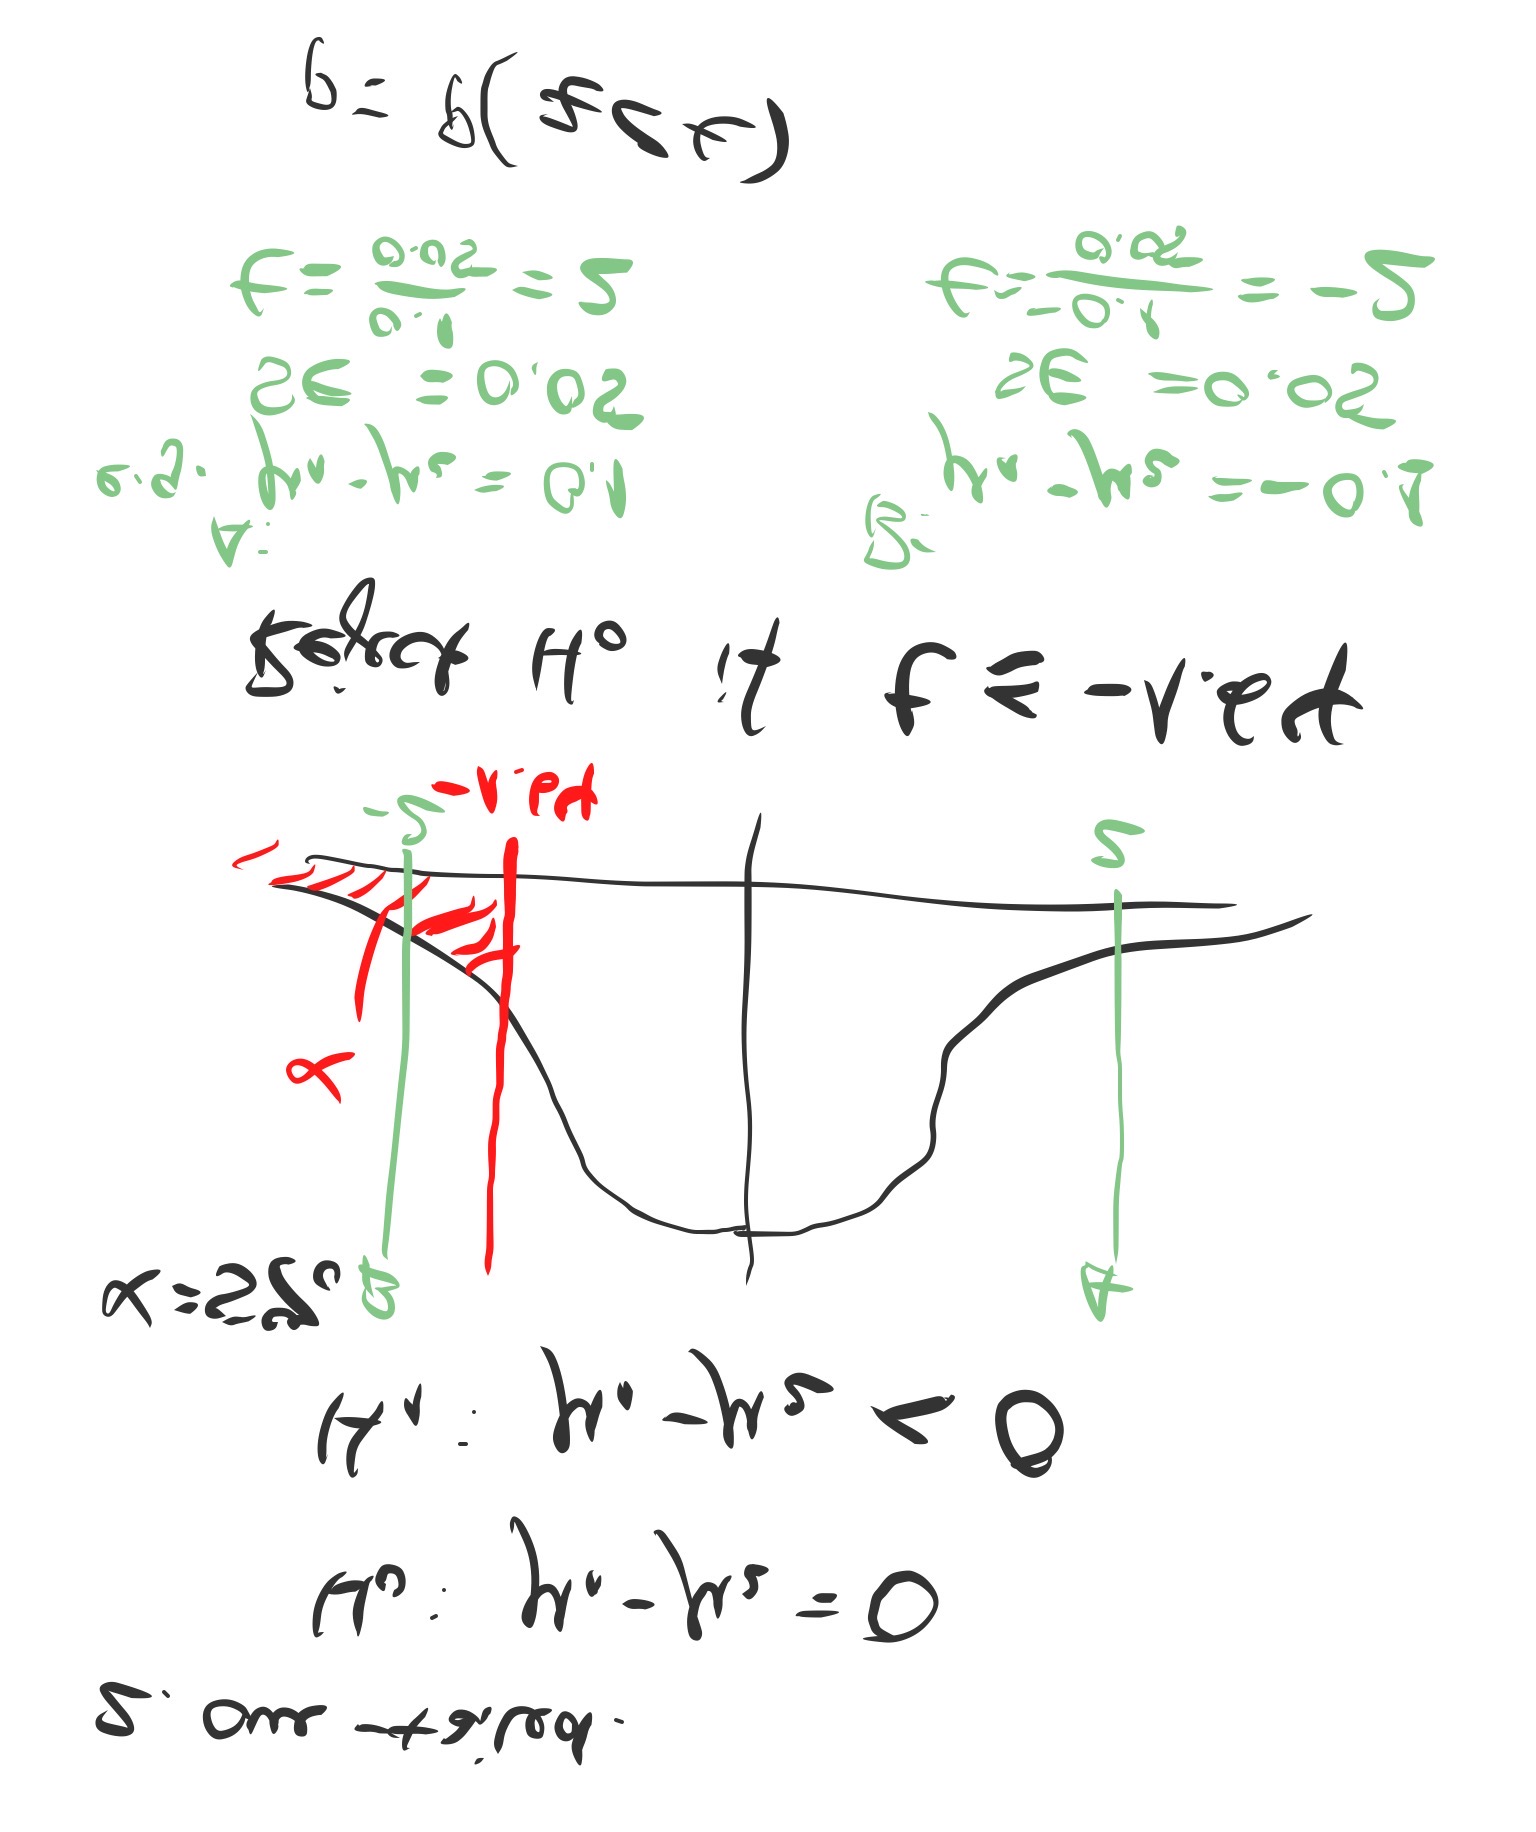 2. one-tailed.
H₀: μ₁-μ₂=0
H₁: μ₁-μ₂<0
α=5%
B A
α
-2 -1.64 2
Reject H₀ if t ≤ -1.64
A: B:
e.g. μ₁-μ₂=0.1 μ₁-μ₂=-0.1
SE =0.05 SE =0.05
t=0.1/0.05=2 t=-0.1/0.05=-2
p=P(z<t)